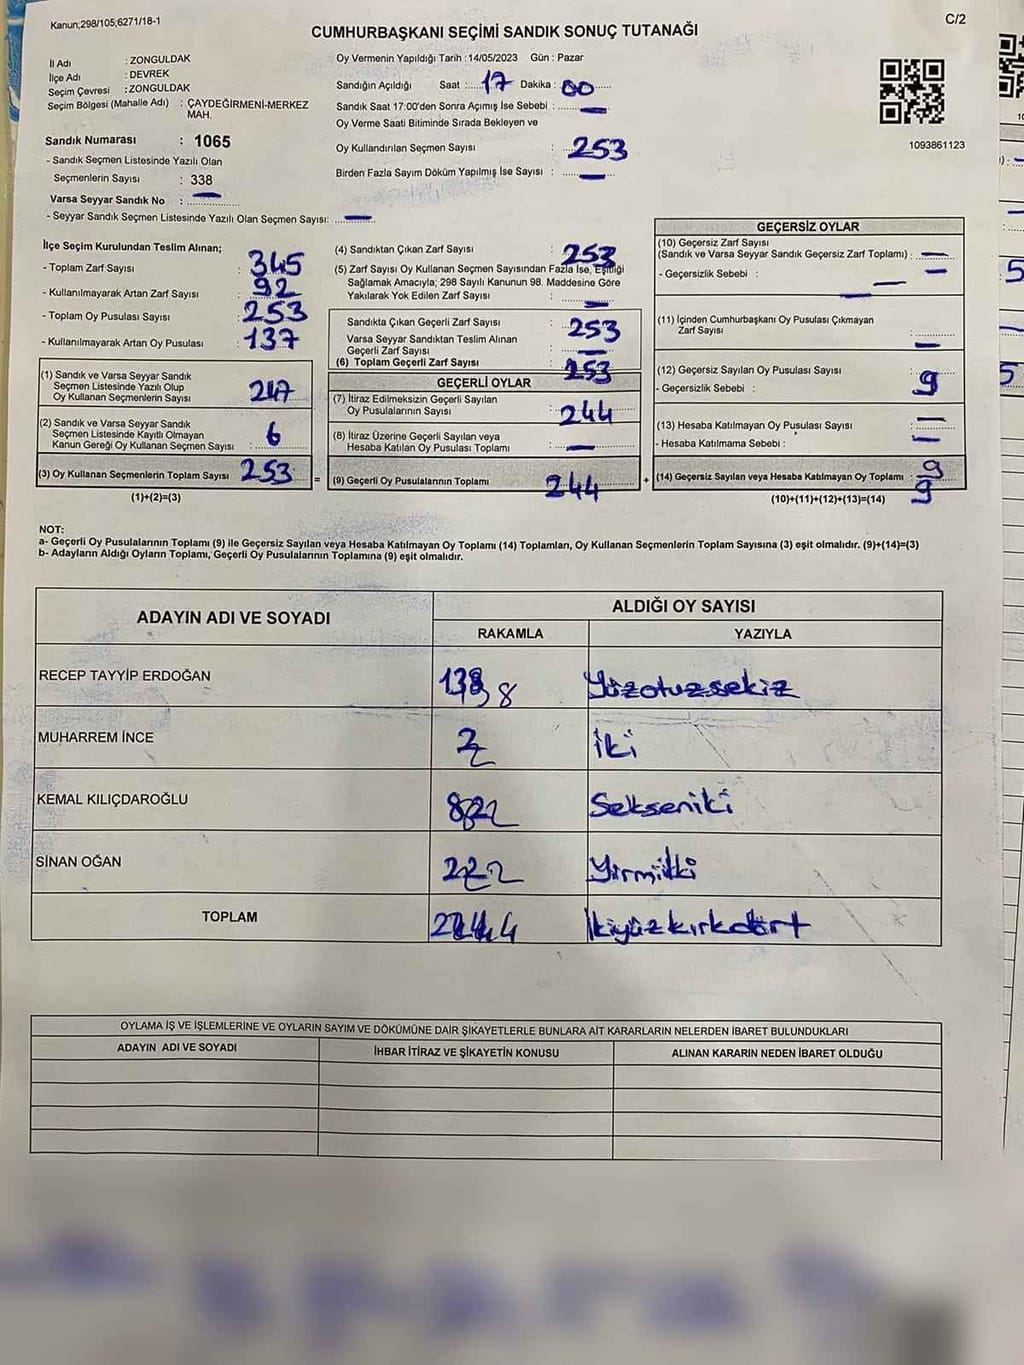 Kanun;298/105;6271/18-1
C/2
CUMHURBAŞKANI SEÇİMİ SANDIK SONUÇ TUTANAĞI
İl Adı : ZONGULDAK
İlçe Adı : DEVREK
Seçim Çevresi : ZONGULDAK
Seçim Bölgesi (Mahalle Adı) : ÇAYDEĞİRMENİ-MERKEZ
MAH.
Sandık Numarası : 1065
- Sandık Seçmen Listesinde Yazılı Olan
Seçmenlerin Sayısı : 338
Varsa Seyyar Sandık No : —
- Seyyar Sandık Seçmen Listesinde Yazılı Olan Seçmen Sayısı: —
Oy Vermenin Yapıldığı Tarih :14/05/2023 Gün : Pazar
Sandığın Açıldığı Saat : 17 Dakika : 00
Sandık Saat 17:00'den Sonra Açımış İse Sebebi : —
Oy Verme Saati Bitiminde Sırada Bekleyen ve
Oy Kullandırılan Seçmen Sayısı : 253
Birden Fazla Sayım Döküm Yapılmış İse Sayısı : —
1093861123
İlçe Seçim Kurulundan Teslim Alınan;
- Toplam Zarf Sayısı : 345
- Kullanılmayarak Artan Zarf Sayısı : 92
- Toplam Oy Pusulası Sayısı : 253
- Kullanılmayarak Artan Oy Pusulası : 137
(1) Sandık ve Varsa Seyyar Sandık
Seçmen Listesinde Yazılı Olup
Oy Kullanan Seçmenlerin Sayısı 247
(2) Sandık ve Varsa Seyyar Sandık
Seçmen Listesinde Kayıtlı Olmayan
Kanun Gereği Oy Kullanan Seçmen Sayısı 6
(3) Oy Kullanan Seçmenlerin Toplam Sayısı 253
(1)+(2)=(3)
=
(4) Sandıktan Çıkan Zarf Sayısı : 253
(5) Zarf Sayısı Oy Kullanan Seçmen Sayısından Fazla İse, Eşitliği
Sağlamak Amacıyla; 298 Sayılı Kanunun 98. Maddesine Göre
Yakılarak Yok Edilen Zarf Sayısı : —
Sandıkta Çıkan Geçerli Zarf Sayısı : 253
Varsa Seyyar Sandıktan Teslim Alınan
Geçerli Zarf Sayısı : —
(6) Toplam Geçerli Zarf Sayısı : 253
GEÇERLİ OYLAR
(7) İtiraz Edilmeksizin Geçerli Sayılan
Oy Pusulalarının Sayısı : 244
(8) İtiraz Üzerine Geçerli Sayılan veya
Hesaba Katılan Oy Pusulası Toplamı : —
(9) Geçerli Oy Pusulalarının Toplamı : 244
+
GEÇERSİZ OYLAR
(10) Geçersiz Zarf Sayısı
(Sandık ve Varsa Seyyar Sandık Geçersiz Zarf Toplamı) : —
- Geçersizlik Sebebi : —
— —
(11) İçinden Cumhurbaşkanı Oy Pusulası Çıkmayan
Zarf Sayısı : —
(12) Geçersiz Sayılan Oy Pusulası Sayısı : 9
- Geçersizlik Sebebi :
(13) Hesaba Katılmayan Oy Pusulası Sayısı : —
- Hesaba Katılmama Sebebi : —
(14) Geçersiz Sayılan veya Hesaba Katılmayan Oy Toplamı : 9
9
(10)+(11)+(12)+(13)=(14)
NOT:
a- Geçerli Oy Pusulalarının Toplamı (9) ile Geçersiz Sayılan veya Hesaba Katılmayan Oy Toplamı (14) Toplamları, Oy Kullanan Seçmenlerin Toplam Sayısına (3) eşit olmalıdır. (9)+(14)=(3)
b- Adayların Aldığı Oyların Toplamı, Geçerli Oy Pusulalarının Toplamına (9) eşit olmalıdır.
ADAYIN ADI VE SOYADI
ALDIĞI OY SAYISI
RAKAMLA YAZIYLA
RECEP TAYYİP ERDOĞAN 138 Yüzotuzsekiz
MUHARREM İNCE 2 İki
KEMAL KILIÇDAROĞLU 82 Sekseniki
SİNAN OĞAN 22 Yirmiiki
TOPLAM 244 İkiyüzkırkdört
OYLAMA İŞ VE İŞLEMLERİNE VE OYLARIN SAYIM VE DÖKÜMÜNE DAİR ŞİKAYETLERLE BUNLARA AİT KARARLARIN NELERDEN İBARET BULUNDUKLARI
ADAYIN ADI VE SOYADI İHBAR İTİRAZ VE ŞİKAYETİN KONUSU ALINAN KARARIN NEDEN İBARET OLDUĞU